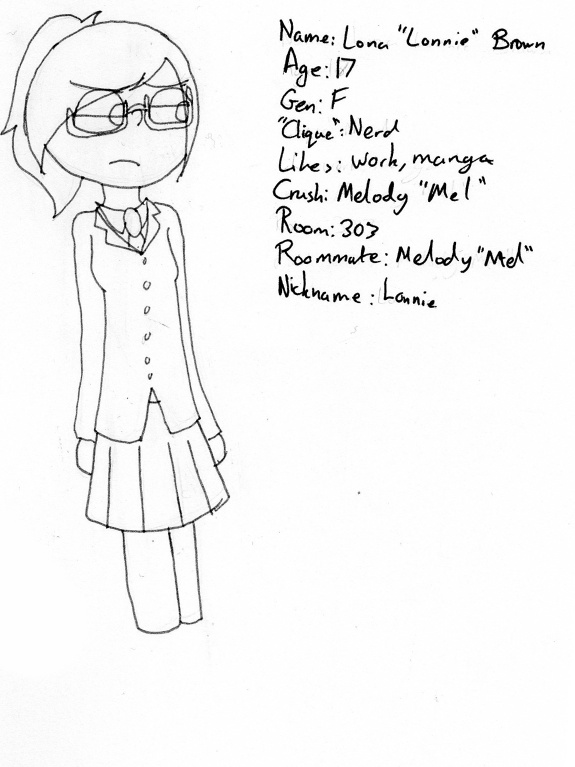 Name: Lona "Lonnie" Brown
Age: 17
Gen: F
"Clique": Nerd
Likes: work, manga
Crush: Melody "Mel"
Room: 303
Roommate: Melody "Mel"
Nickname: Lonnie